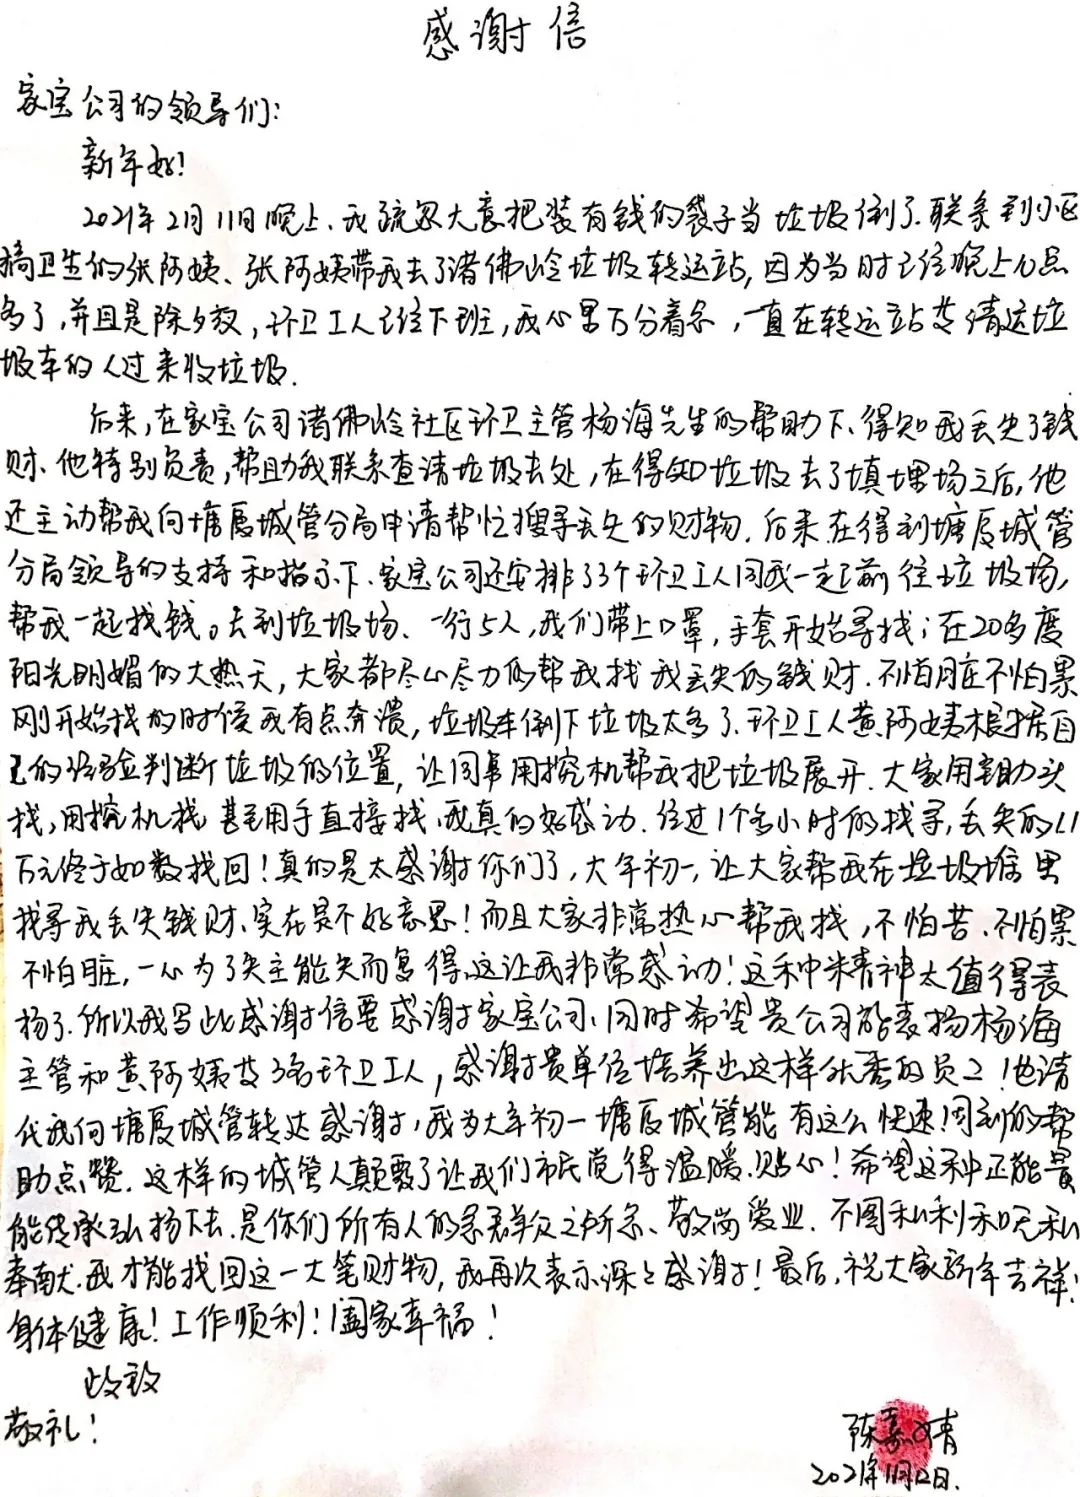 感谢信
家宝公司的领导们:
新年好!
2021年2月11日晚上、我疏忽大意把装有钱的袋子当垃圾倒了.联系到小区
搞卫生的张阿姨、张阿姨带我去了诸佛岭垃圾转运站,因为当时已经晚上10点
多了,并且是除夕夜,环卫工人已经下班,我心里万分着急,一直在转运站等清运垃
圾车的人过来收垃圾.
后来,在家宝公司诸佛岭社区环卫主管杨海先生的帮助下、得知我丢失了钱
财、他特别负责,帮助我联系查清垃圾去处,在得知垃圾去了填埋场之后,他
还主动帮我向塘厦城管分局申请帮忙搜寻丢失的财物.后来在得到塘厦城管
分局领导的支持和指示下、家宝公司还安排了3个环卫工人同我一起前往垃圾场,
帮我一起找钱。去到垃圾场、一行5人,我们带上口罩,手套开始寻找;在20多度
阳光明媚的大热天,大家都尽心尽力的帮我找我丢失的钱财.不怕脏不怕累
刚开始找的时侯我有点奔溃,垃圾车倒下垃圾太多了.环卫工人黄阿姨根据自
己的经验判断垃圾的位置,让同事用挖机帮我把垃圾展开.大家用锄头
找,用挖机找 甚至用手直接找、我真的好感动.经过1个多小时的找寻,丢失的1.1
万元终于如数找回!真的是太感谢你们了,大年初一,让大家帮我在垃圾堆里
找寻我丢失钱财、实在是不好意思!而且大家非常热心帮我找,不怕苦.不怕累
不怕脏,一心为了失主能失而复得、这让我非常感动!这种精神太值得表
扬了.所以我写此感谢信要感谢家宝公司、同时希望贵公司能表扬杨海
主管和黄阿姨及3名环卫工人,感谢贵单位培养出这样优秀的员工!也请
代我向塘厦城管转达感谢,我为大年初一塘厦城管能有这么快速周到的帮
助点赞.这样的城管人颠覆了让我们市民觉得温暖.贴心!希望这种正能量
能传承弘扬下去.是你们所有人的急群众之所急、敬岗爱业.不图私利和无私
奉献.我才能找回这一大笔财物,我再次表示深深感谢!最后,祝大家新年吉祥!
身体健康!工作顺利!阖家幸福!
此致
敬礼!
陈嘉婧
2021年月12日.